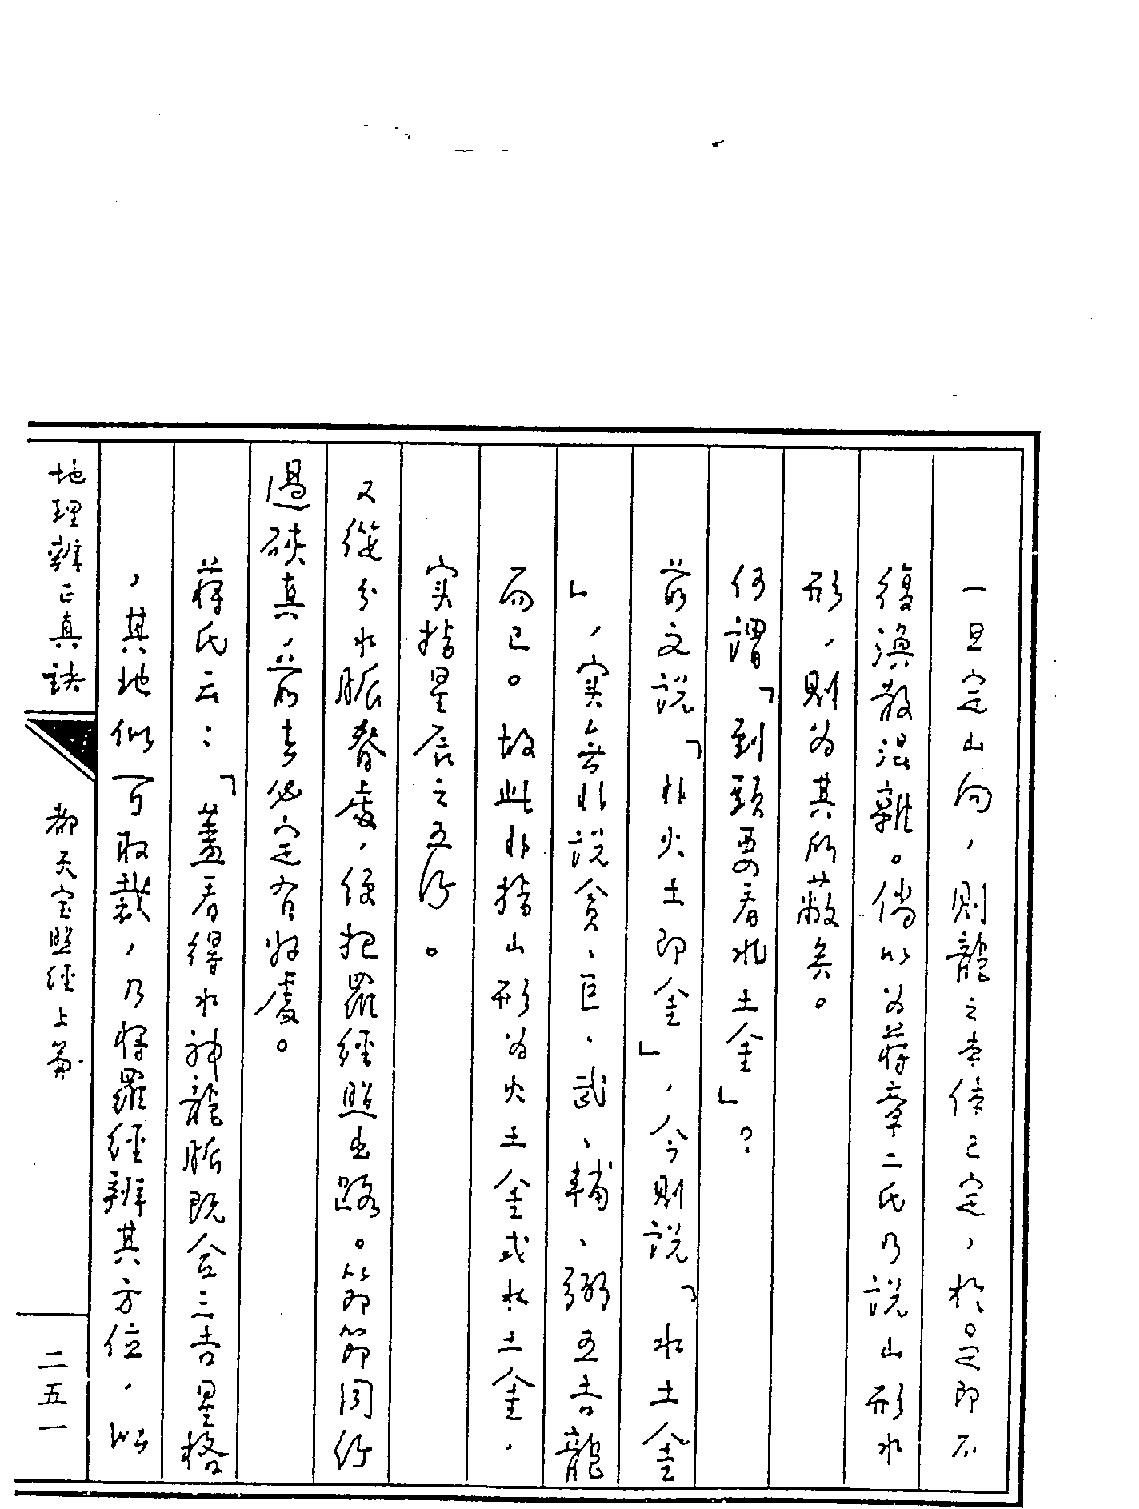 一旦定山向，則龍之來情已定，於是即不
復渙散混雜。倘以为蔣章二氏乃說山形水
形，則为其所蔽矣。
何謂「到頭要看水土金」？
前文說「水火土即金」，今則說「水土金
」，實無非說貪、巨、武、輔、弼五吉龍
而已。故此非指山形为火土金或水土金，
实指星辰之五行。
又從分水脈脊處，便把羅經照出路。节節同行
過硤真，前去必定有好處。
蔣氏云：「蓋看得水神龍脈既合三吉星格
，其地似可取裁，乃將羅經辨其方位，以
地理辨正真訣
都天宝照經上篇
二五一